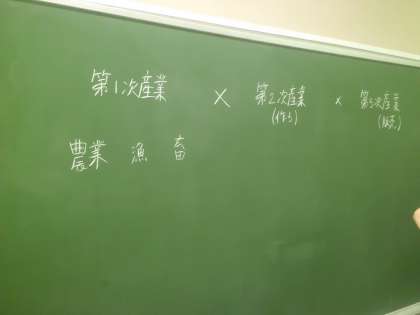 第1次産業 × 第2次産業 × 第3次産業
(作る) (販売)
農業 漁 畜